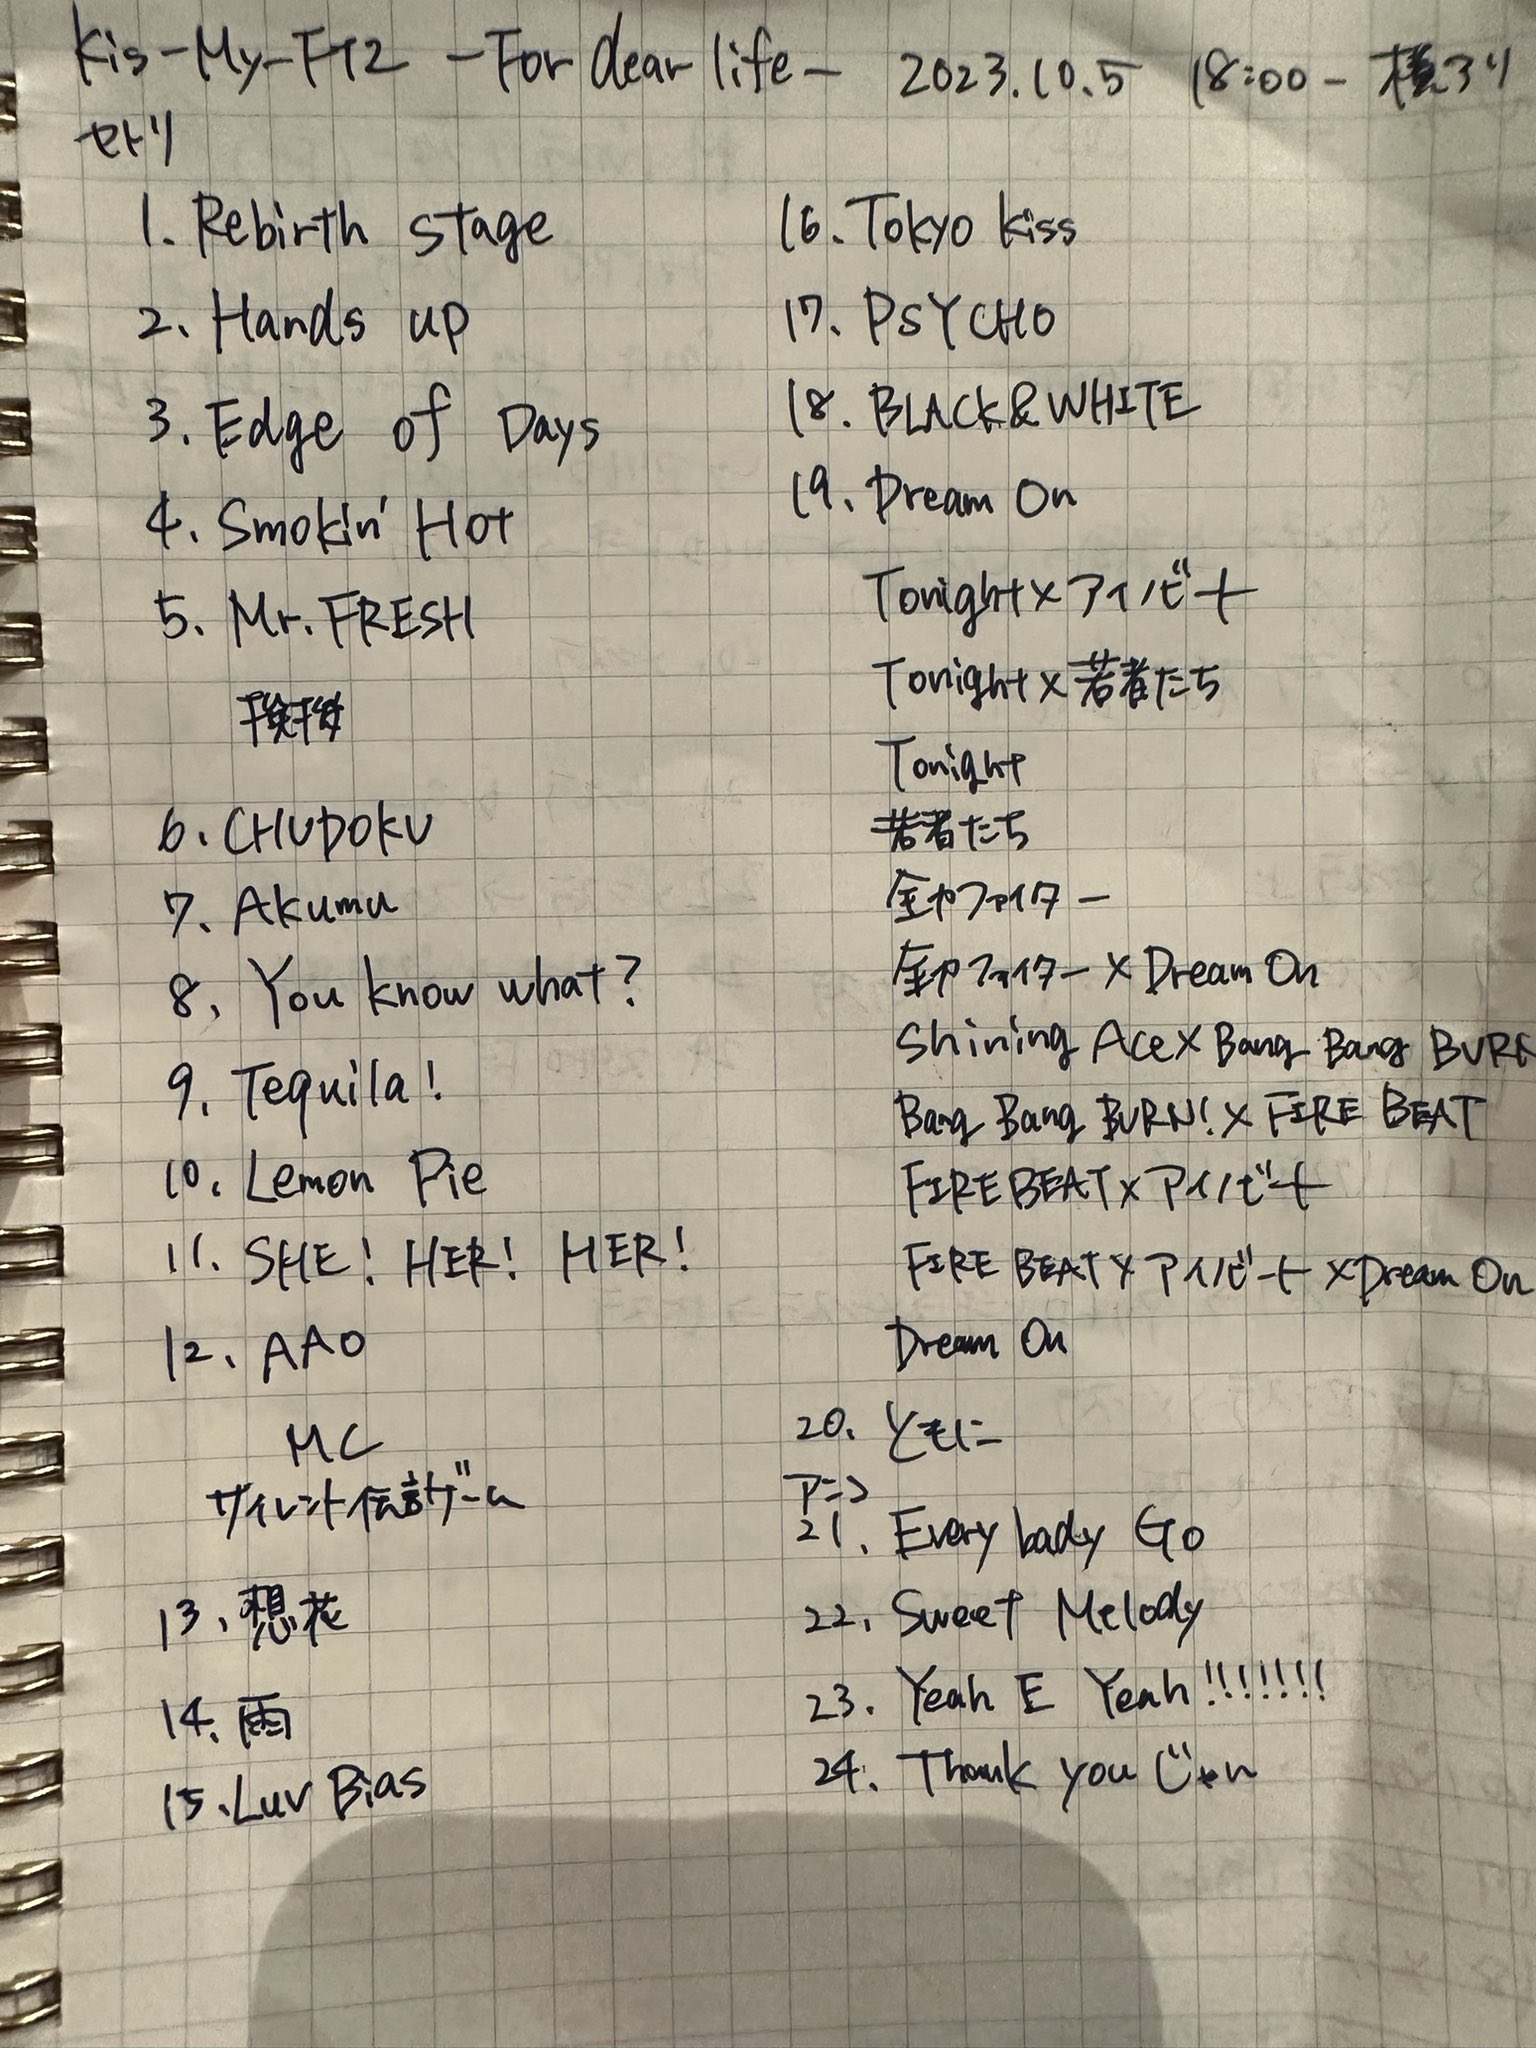 Kis-My-Ft2 -For dear life- 2023.10.5 18:00- 横アリ
セトリ
1. Rebirth stage
2. Hands up
3. Edge of Days
4. Smokin' Hot
5. Mr. FRESH
挨拶
6. CHUDOKU
7. Akumu
8. You know what?
9. Tequila!
10. Lemon Pie
11. SHE! HER! HER!
12. AAO
MC
サイレント伝言ゲーム
13. 想花
14. 雨
15. Luv Bias
16. Tokyo kiss
17. PSYCHO
18. BLACK&WHITE
19. Dream On
Tonight×アイノビート
Tonight×若者たち
Tonight
若者たち
全力ファイター
全力ファイター×Dream On
Shining Ace×Bang Bang BURN
Bang Bang BURN!×FIRE BEAT
FIRE BEAT×アイノビート
FIRE BEAT×アイノビート×Dream On
Dream On
20. ともに
アンコ
21. Every body Go
22. Sweet Melody
23. Yeah E Yeah!!!!!!!
24. Thank youじゃん